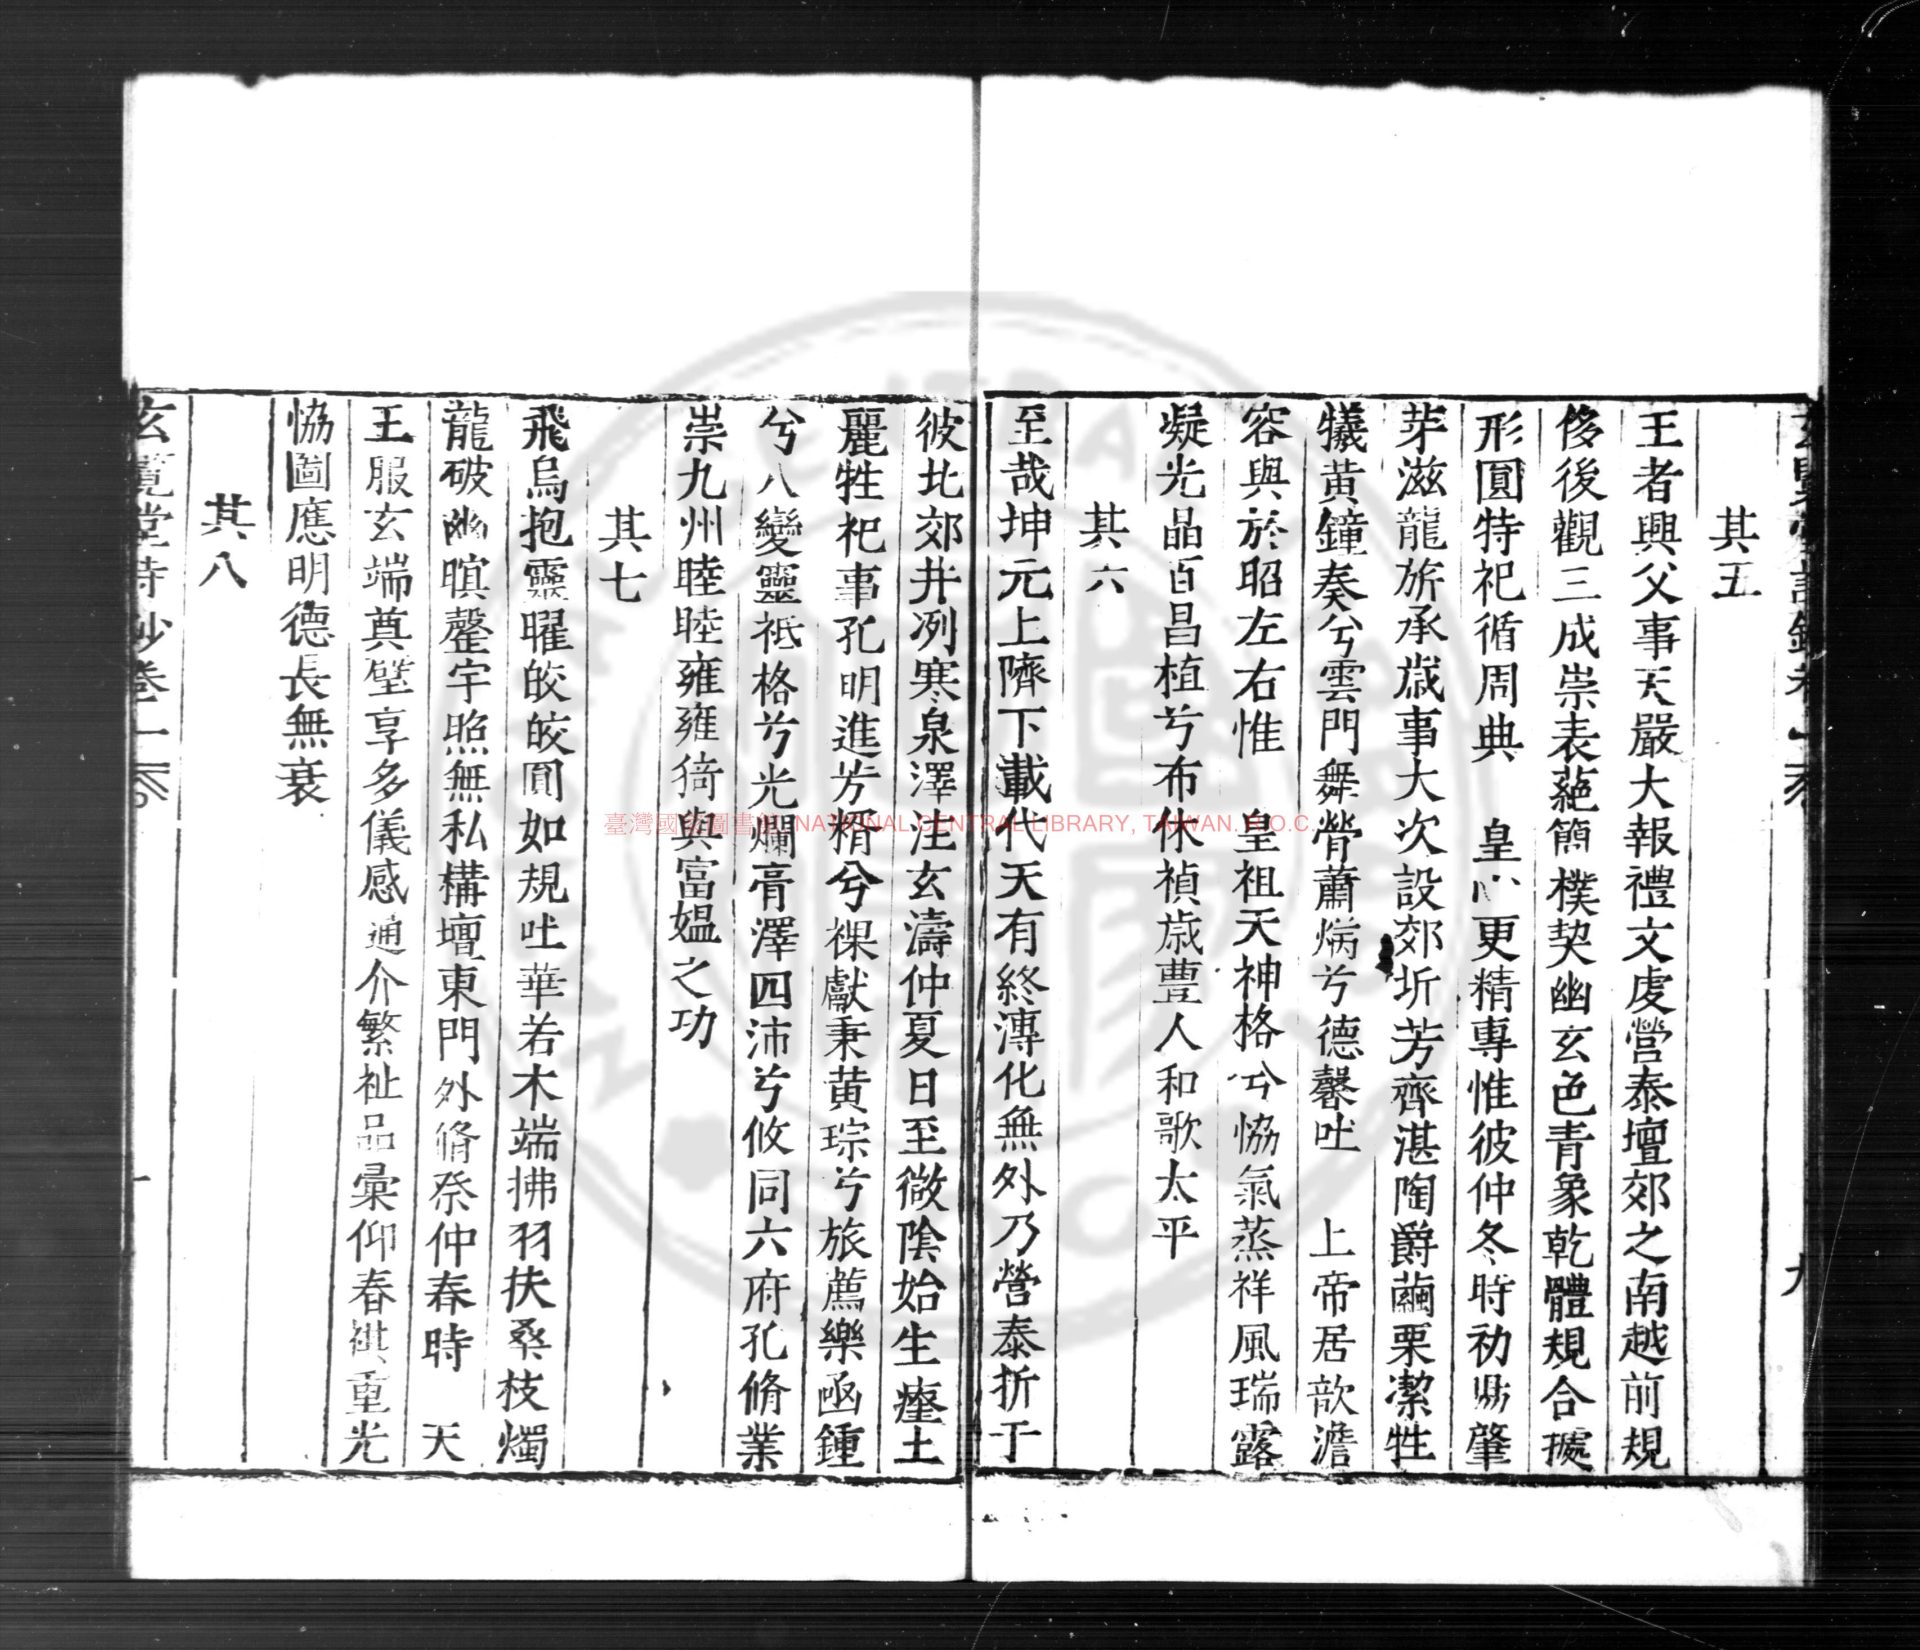 其五
王者興父事天嚴大報禮文虔營泰壇郊之南越前規
侈後觀三成崇表蕝簡樸契幽玄色青象乾體規合處
形圓特祀循周典 皇心更精專惟彼仲冬時初鼎肇
芽滋龍旂承歲事大次設郊圻芳齊湛陶爵繭栗潔牲
犧黃鐘奏兮雲門舞膋蕭焫兮德馨吐 上帝居歆澹
容與於昭左右惟 皇祖天神格兮協氣蒸祥風瑞露
凝光晶百昌植兮布休禎歲豐人和歌太平
其六
至哉坤元上隮下載代天有終漙化無外乃營泰折于
彼北郊井冽寒泉澤注玄濤仲夏日至微陰始生瘞土
麗牲祀事孔明進芳糈兮祼獻秉黃琮兮旅薦樂函鍾
兮八變靈祇格兮光爛膏澤四沛兮攸同六府孔脩業
崇九州睦睦雍雍猗與富媼之功
其七
飛烏抱靈曜皎皎圓如規吐華若木端拂羽扶桑枝燭
龍破幽暝罄宇照無私構壇東門外脩祭仲春時 天
王服玄端奠璧享多儀感通介繁祉品彙仰春祺重光
協圖應明德長無衰
其八
玄覽堂詩鈔卷一